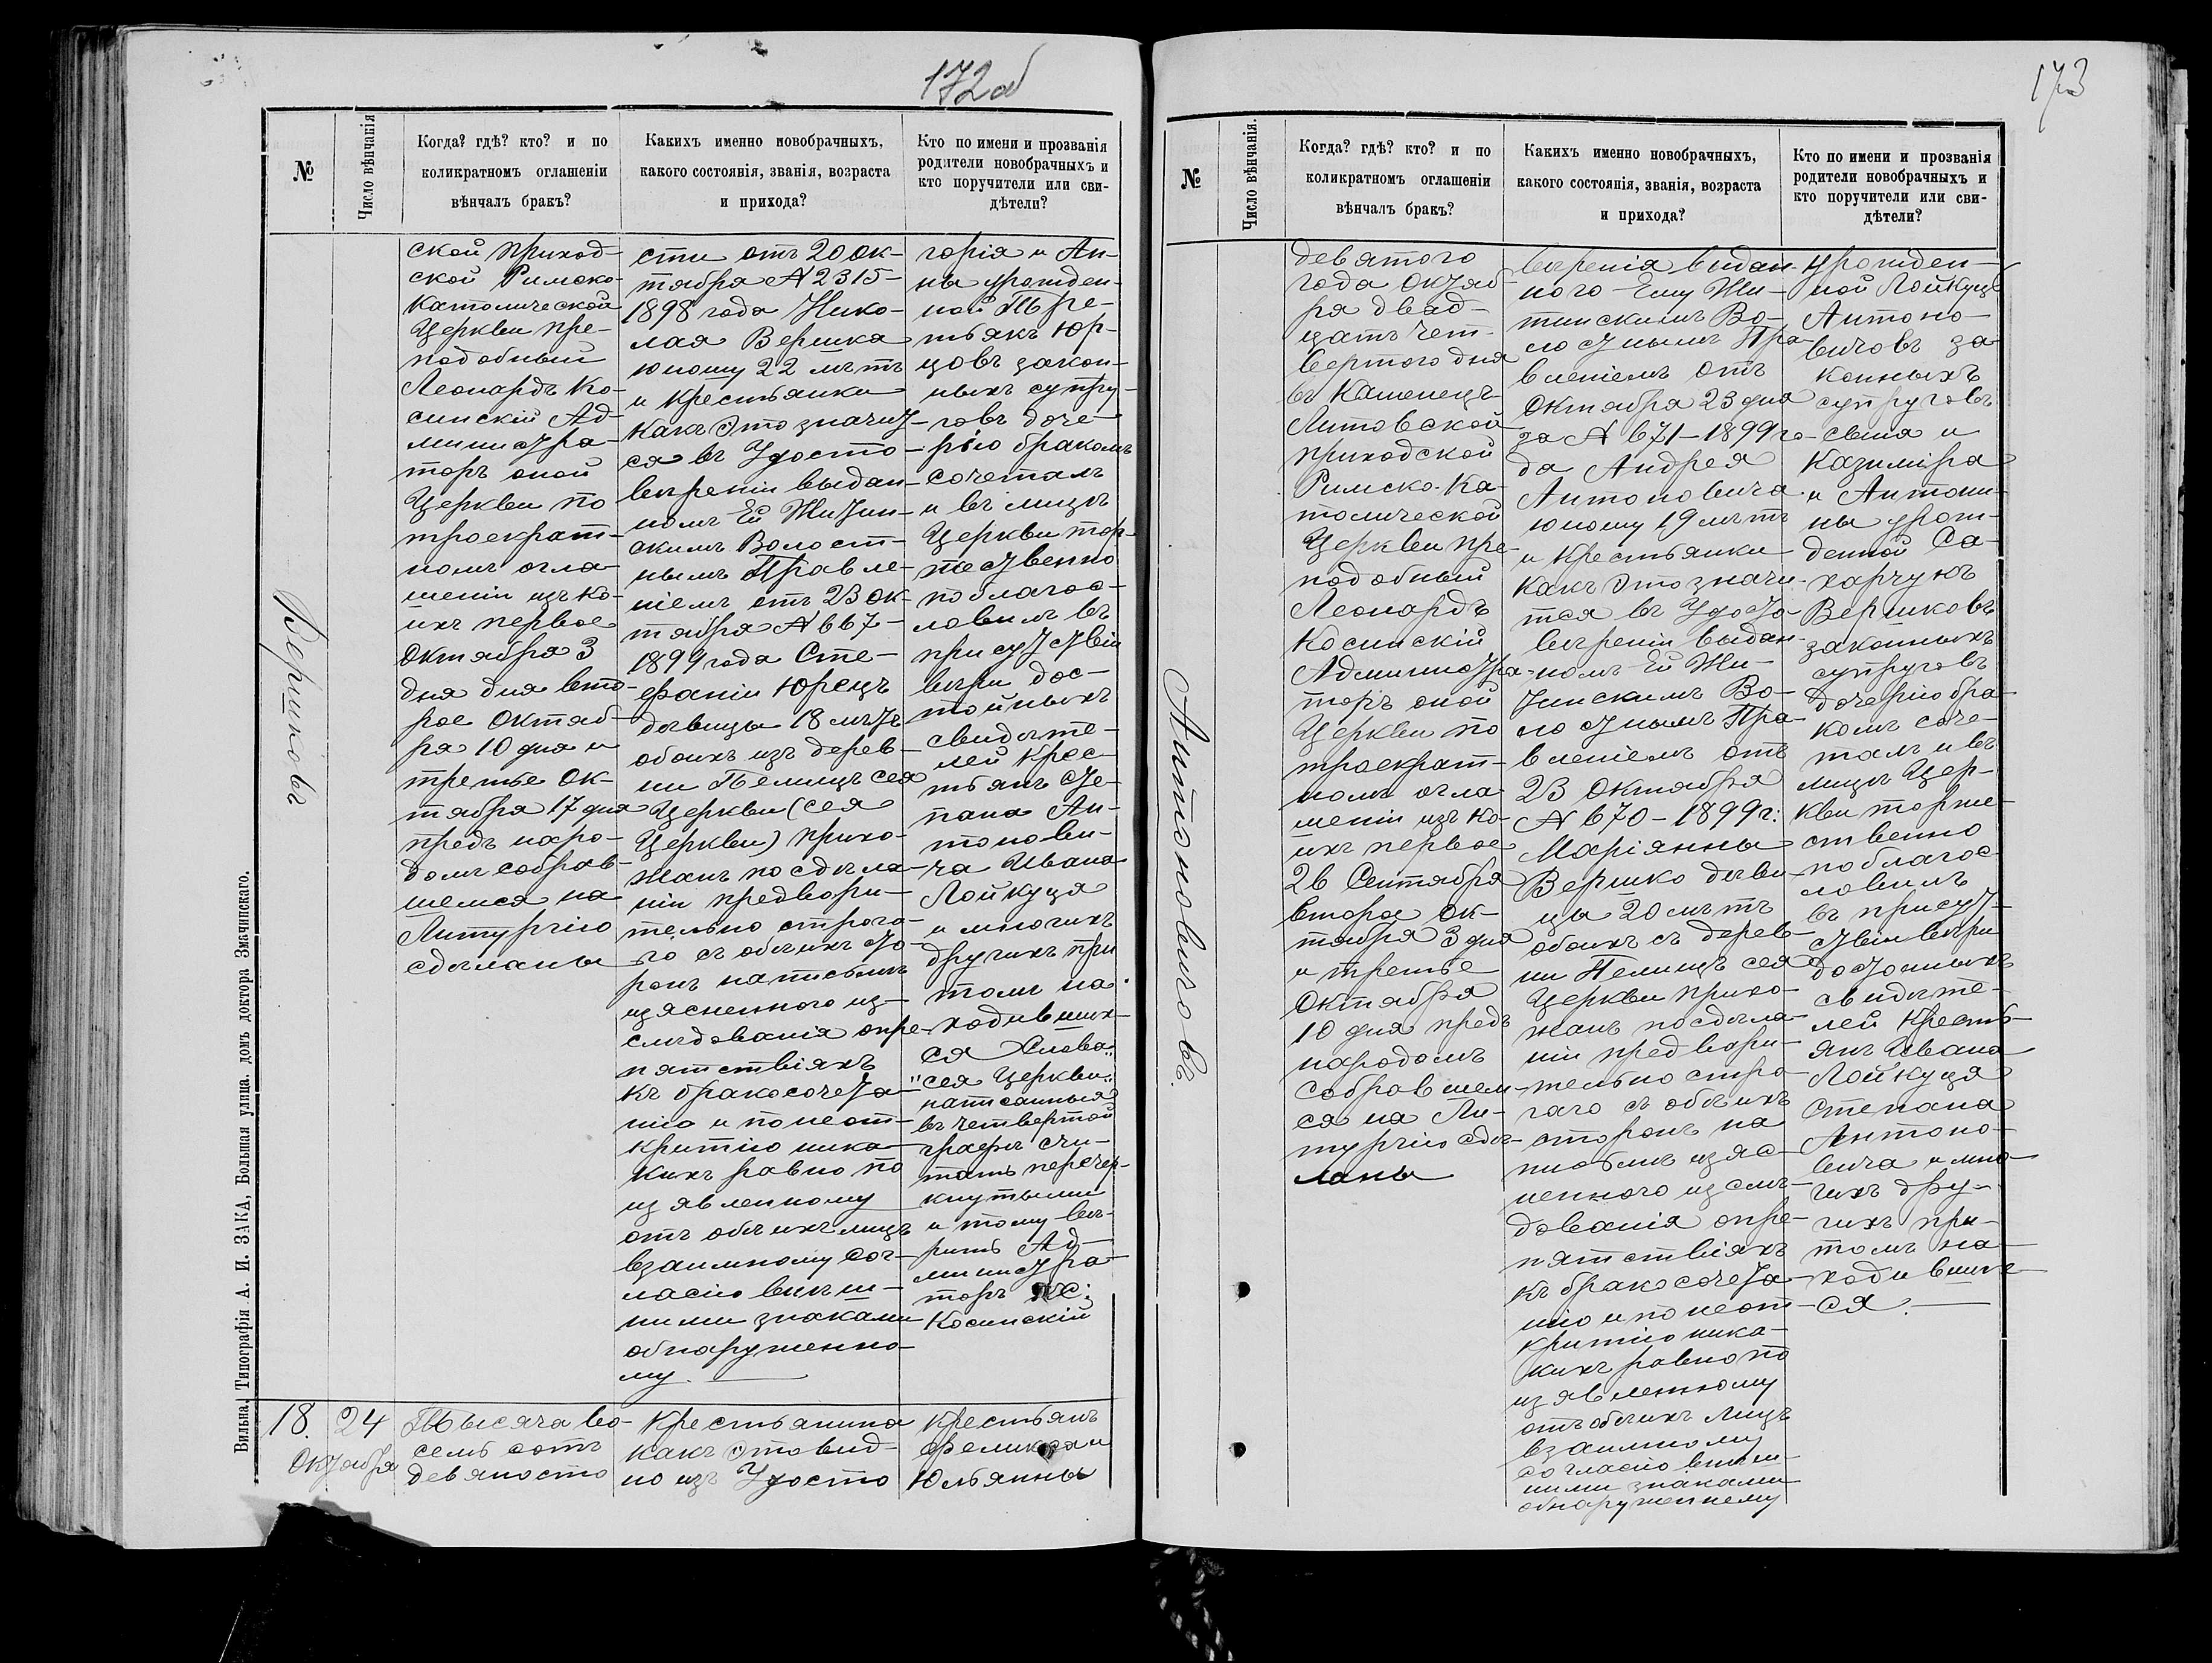 172об
№
Число вѣнчанія
Когда? гдѣ? кто? и по
коликратномъ оглашеніи
вѣнчалъ бракъ?
Какихъ именно новобрачныхъ,
какого состоянія, званія, возраста
и прихода?
Кто по имени и прозванія
родители новобрачныхъ и
кто поручители или сви-
дѣтели?
Вершковъ
ской приход-
ской Римско-
католической
Церкви пре-
подобный
Леонардъ Ко-
синскій Ад-
министра-
торъ оной
Церкви по
троекрат-
номъ огла-
шеніи изъ ко-
ихъ первое
Октября 3
дня дня вто-
рое Октяб-
ря 10 дня и
третье Ок-
тября 17 дня
предъ наро-
домъ собрав-
шемся на
Литургію
сдѣланы
сти отъ 20 ок-
тября № 2315-
1898 года Нико-
лая Вершка
юношу 22 лѣтъ
и крестьянки
какъ это значит-
ся въ Удосто-
вѣреніи выдан-
номъ Ей Житин-
скимъ Волост-
нымъ Правле-
ніемъ отъ 23 ок-
тября № 667-
1899 года Сте-
фаніи Юрецъ
дѣвицы 18 лѣтъ
обоихъ изъ дерев-
ни Пелищъ сея
Церкви (сея
Церкви) прихо-
жанъ по сдѣла-
ніи предвори-
тельно строго-
го съ обѣихъ сто-
ронъ на письмѣ
изясненного из-
слѣдованія опре-
пятствіяхъ
къ бракосочета-
нію и по неот-
критію ника-
кихъ равно по
изявленному
отъ обѣихъ лицъ
взаимному сог-
ласію внѣш-
ними знаками
обнаруженно-
му.
горія и Ан-
ны урожден-
ной Тре-
тьякъ Юр-
цовъ закон-
ныхъ супру-
говъ доче-
рію бракомъ
сочеталъ
и въ лицѣ
Церкви тор-
жественно
поблагос-
ловилъ въ
присутствіи
вѣри дос-
тойныхъ
свидѣте-
лей крес-
тьянъ Сте-
пана Ан-
тонови-
ча Ивана
Лойкуця
и многихъ
другихъ при
томъ на-
ходивших-
ся Слова:
"сея Церкви"
написанныя
въ четвертой
графѣ счи-
тать перечер-
кнутыми
и тому вѣ-
рить Ад-
министра-
торъ
Косинскій
18.
24
Октября
Тысяча во-
семь сотъ
девяносто
Крестьянина
какъ это вид-
но изъ Удосто
Крестьянъ
Феликса и
Юльянны
Вильна, Типографія А. И. ЗАКА, Большая улица. домъ доктора Змачинскаго.
173
№
Число вѣнчанія.
Когда? гдѣ? кто? и по
коликратномъ оглашеніи
вѣнчалъ бракъ?
Какихъ именно новобрачныхъ,
какого состоянія, званія, возраста
и прихода?
Кто по имени и прозванія
родители новобрачныхъ и
кто поручители или сви-
дѣтели?
Антоновичовъ.
девятого
года Октяб-
ря двад-
цать чет-
вертого дня
въ Каменецъ-
Литовской
приходской
Римско-Ка-
толической
Церкви пре-
подобный
Леонардъ
Косинскій
Администра-
торъ оной
Церкви по
троекрат-
номъ огла-
шеніи изъ ко-
ихъ первое
26 Сентября
второе Ок-
тября 3 дня
и третье
Октября
10 дня предъ
народомъ
собравшем-
ся на Ли-
тургію сдѣ-
ланы
вѣренія выдан-
ного Ему Жи-
тинскимъ Во-
лостнымъ Пра-
вленіемъ отъ
Октября 23 дня
за № 671-1899 го-
да Андрея
Антоновича
юношу 19 лѣтъ
и крестьянки
какъ это значи-
тся въ Удосто-
вѣреніи выдан-
номъ Ей Жи-
тинскимъ Во-
лостнымъ Пра-
вленіемъ отъ
23 Октября
№ 670-1899 г:
Маріянны
Вершко дѣви-
цы 20 лѣтъ
обоихъ съ дерев-
ни Пелищъ сея
Церкви прихо-
жанъ по сдѣла-
ніи предвари-
тельно стро-
гаго съ обѣихъ
сторонъ на
письмѣ изяс-
ненного изслѣ-
дованія опре-
пятствіяхъ
къ бракосочета-
нію и по неот-
критію ника-
кихъ равно по
изявленному
отъ обѣихъ лицъ
взаимному
согласію внѣш-
ними знаками
обнаруженному
урожден-
ной Лойкуцѣ
Антоно-
вичовъ за-
конныхъ
супруговъ
сына и
Казиміра
и Антони-
ны урож-
денной Са-
харчукъ
Вершковъ
законныхъ
супруговъ
дочерію бра-
комъ соче-
талъ и въ
лицѣ Цер-
кви торже-
ственно
поблагос-
ловилъ
въ присут-
ствіи вѣри
достойныхъ
свидѣте-
лей Кресть-
янъ Ивана
Лойкуця
Степана
Антоно-
вича и мно-
гихъ дру-
гихъ при-
томъ на-
ходивших-
ся.